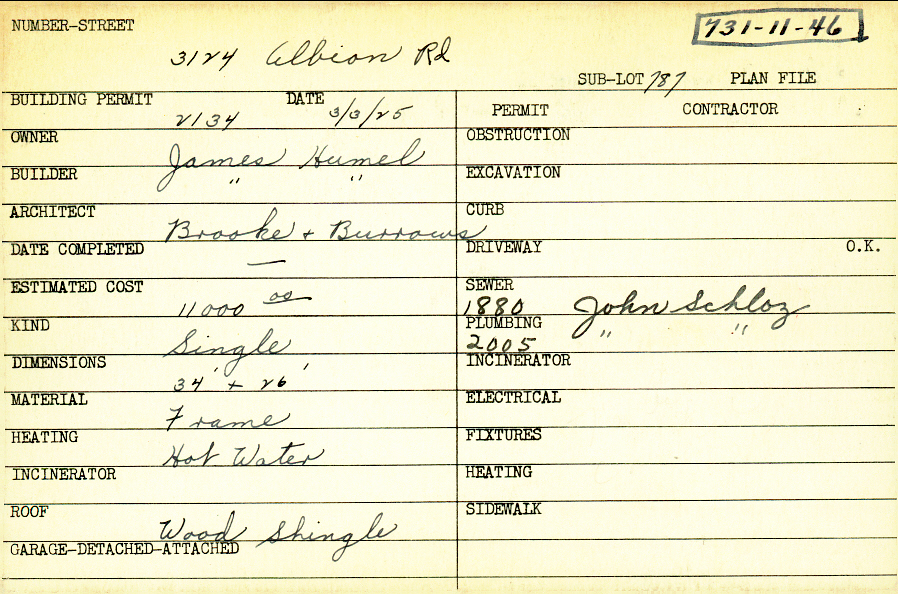 NUMBER-STREET
731-11-46
3124 Albion Rd
SUB-LOT 787 PLAN FILE
BUILDING PERMIT 2134 DATE 3/3/25
PERMIT CONTRACTOR
OWNER James Humel
OBSTRUCTION
BUILDER " "
EXCAVATION
ARCHITECT Brooke + Burrows
CURB
DATE COMPLETED —
DRIVEWAY O.K.
ESTIMATED COST 11000 00
SEWER 1880 John Schloz
KIND Single
PLUMBING 2005 " "
DIMENSIONS 34' + 26'
INCINERATOR
MATERIAL Frame
ELECTRICAL
HEATING Hot Water
FIXTURES
INCINERATOR
HEATING
ROOF Wood Shingle
SIDEWALK
GARAGE-DETACHED-ATTACHED